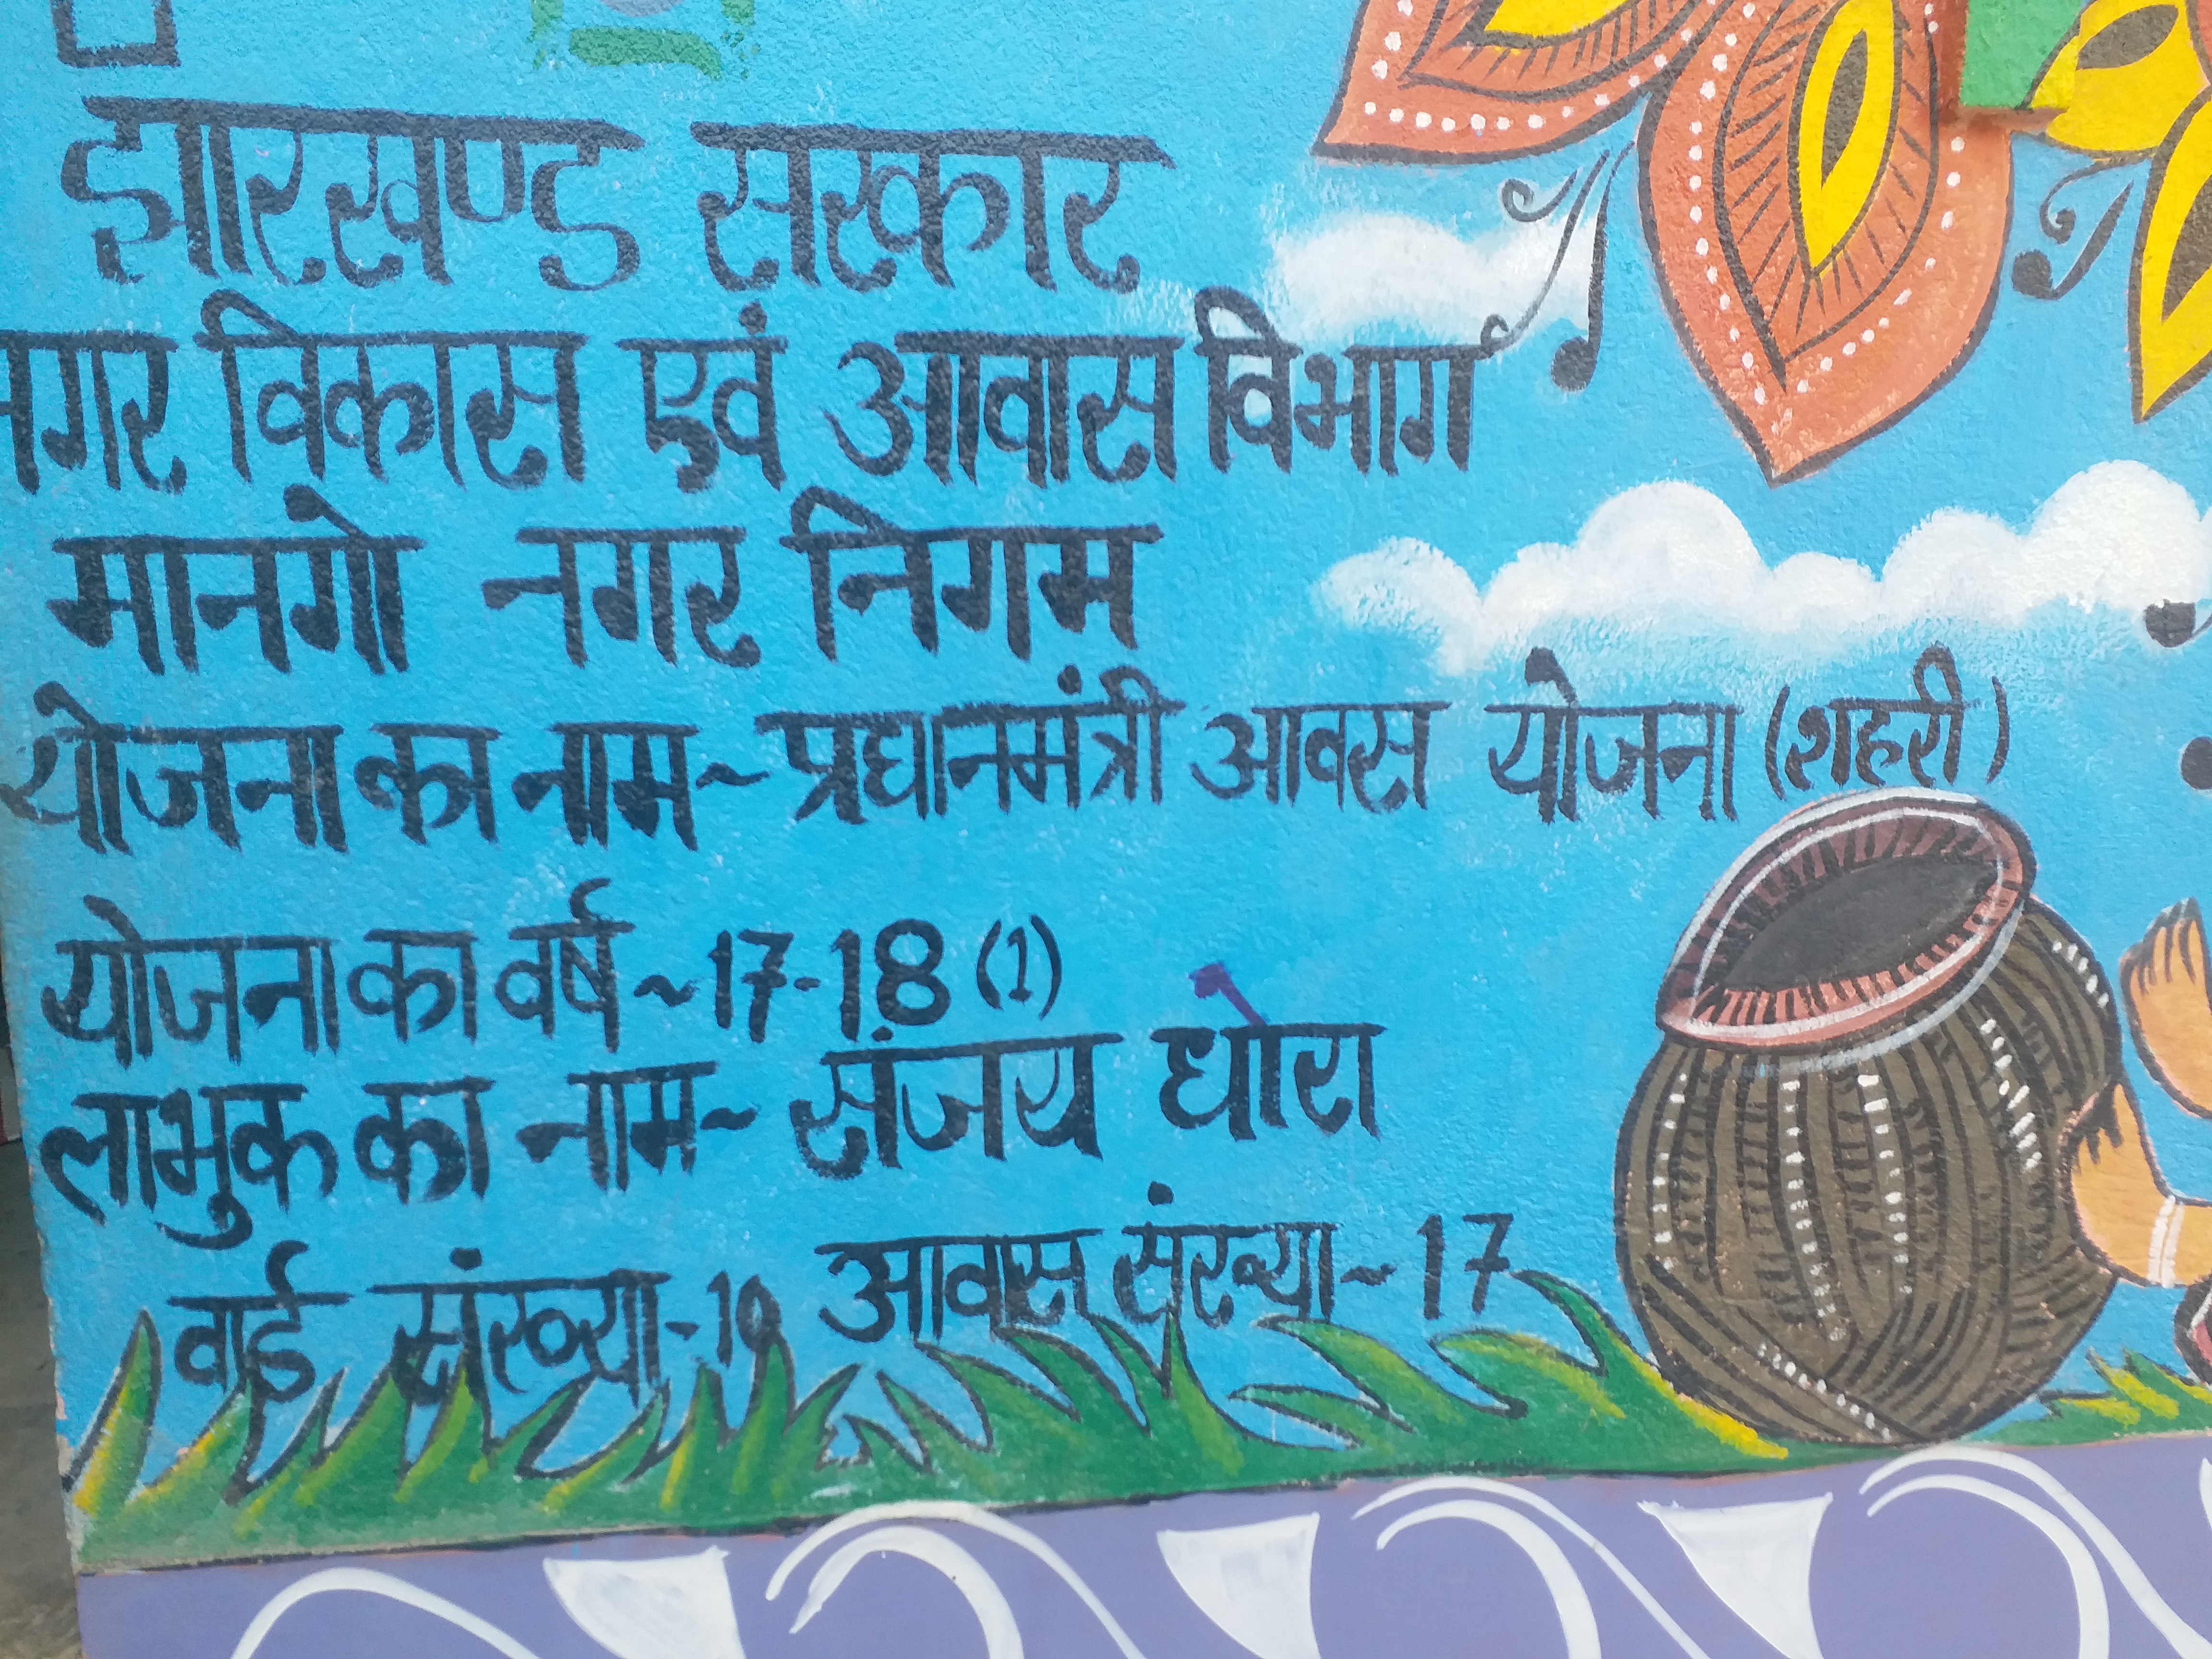 झारखण्ड सरकार
नगर विकास एवं आवास विभाग
मानगो नगर निगम
योजना का नाम~ प्रधानमंत्री आवस योजना (शहरी)
योजना का वर्ष ~17-18 (1)
लाभुक का नाम~ संजय घोरा
वार्ड संख्या-10 आवास संख्या~17